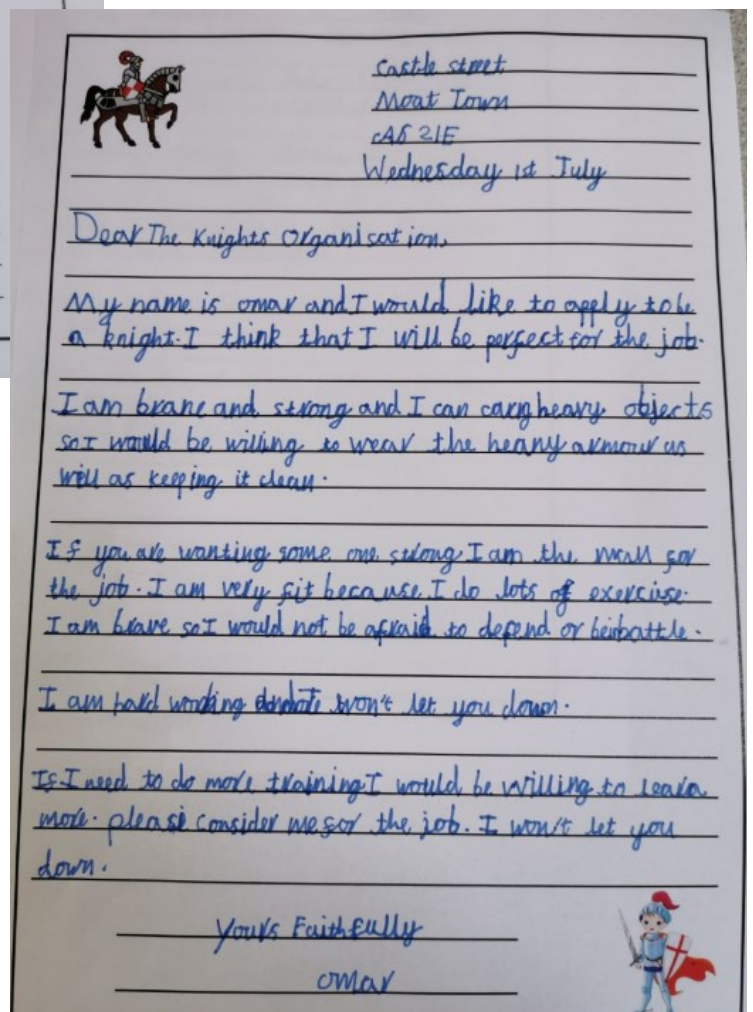 castle street
Moat Town
CA5 21E
Wednesday 1st July
Dear The Knights Organisation,
My name is omar and I would like to apply to be
a knight. I think that I will be perfect for the job.
I am brave and strong and I can carry heavy objects
so I would be willing to wear the heavy armour as
well as keeping it clean.
If you are wanting some one strong I am the man for
the job. I am very fit because I do lots of exercise.
I am brave so I would not be afraid to defend or be in battle.
I am hard working won't let you down.
If I need to do more training I would be willing to learn
more. please consider me for the job. I won't let you
down.
Yours Faithfully
omar